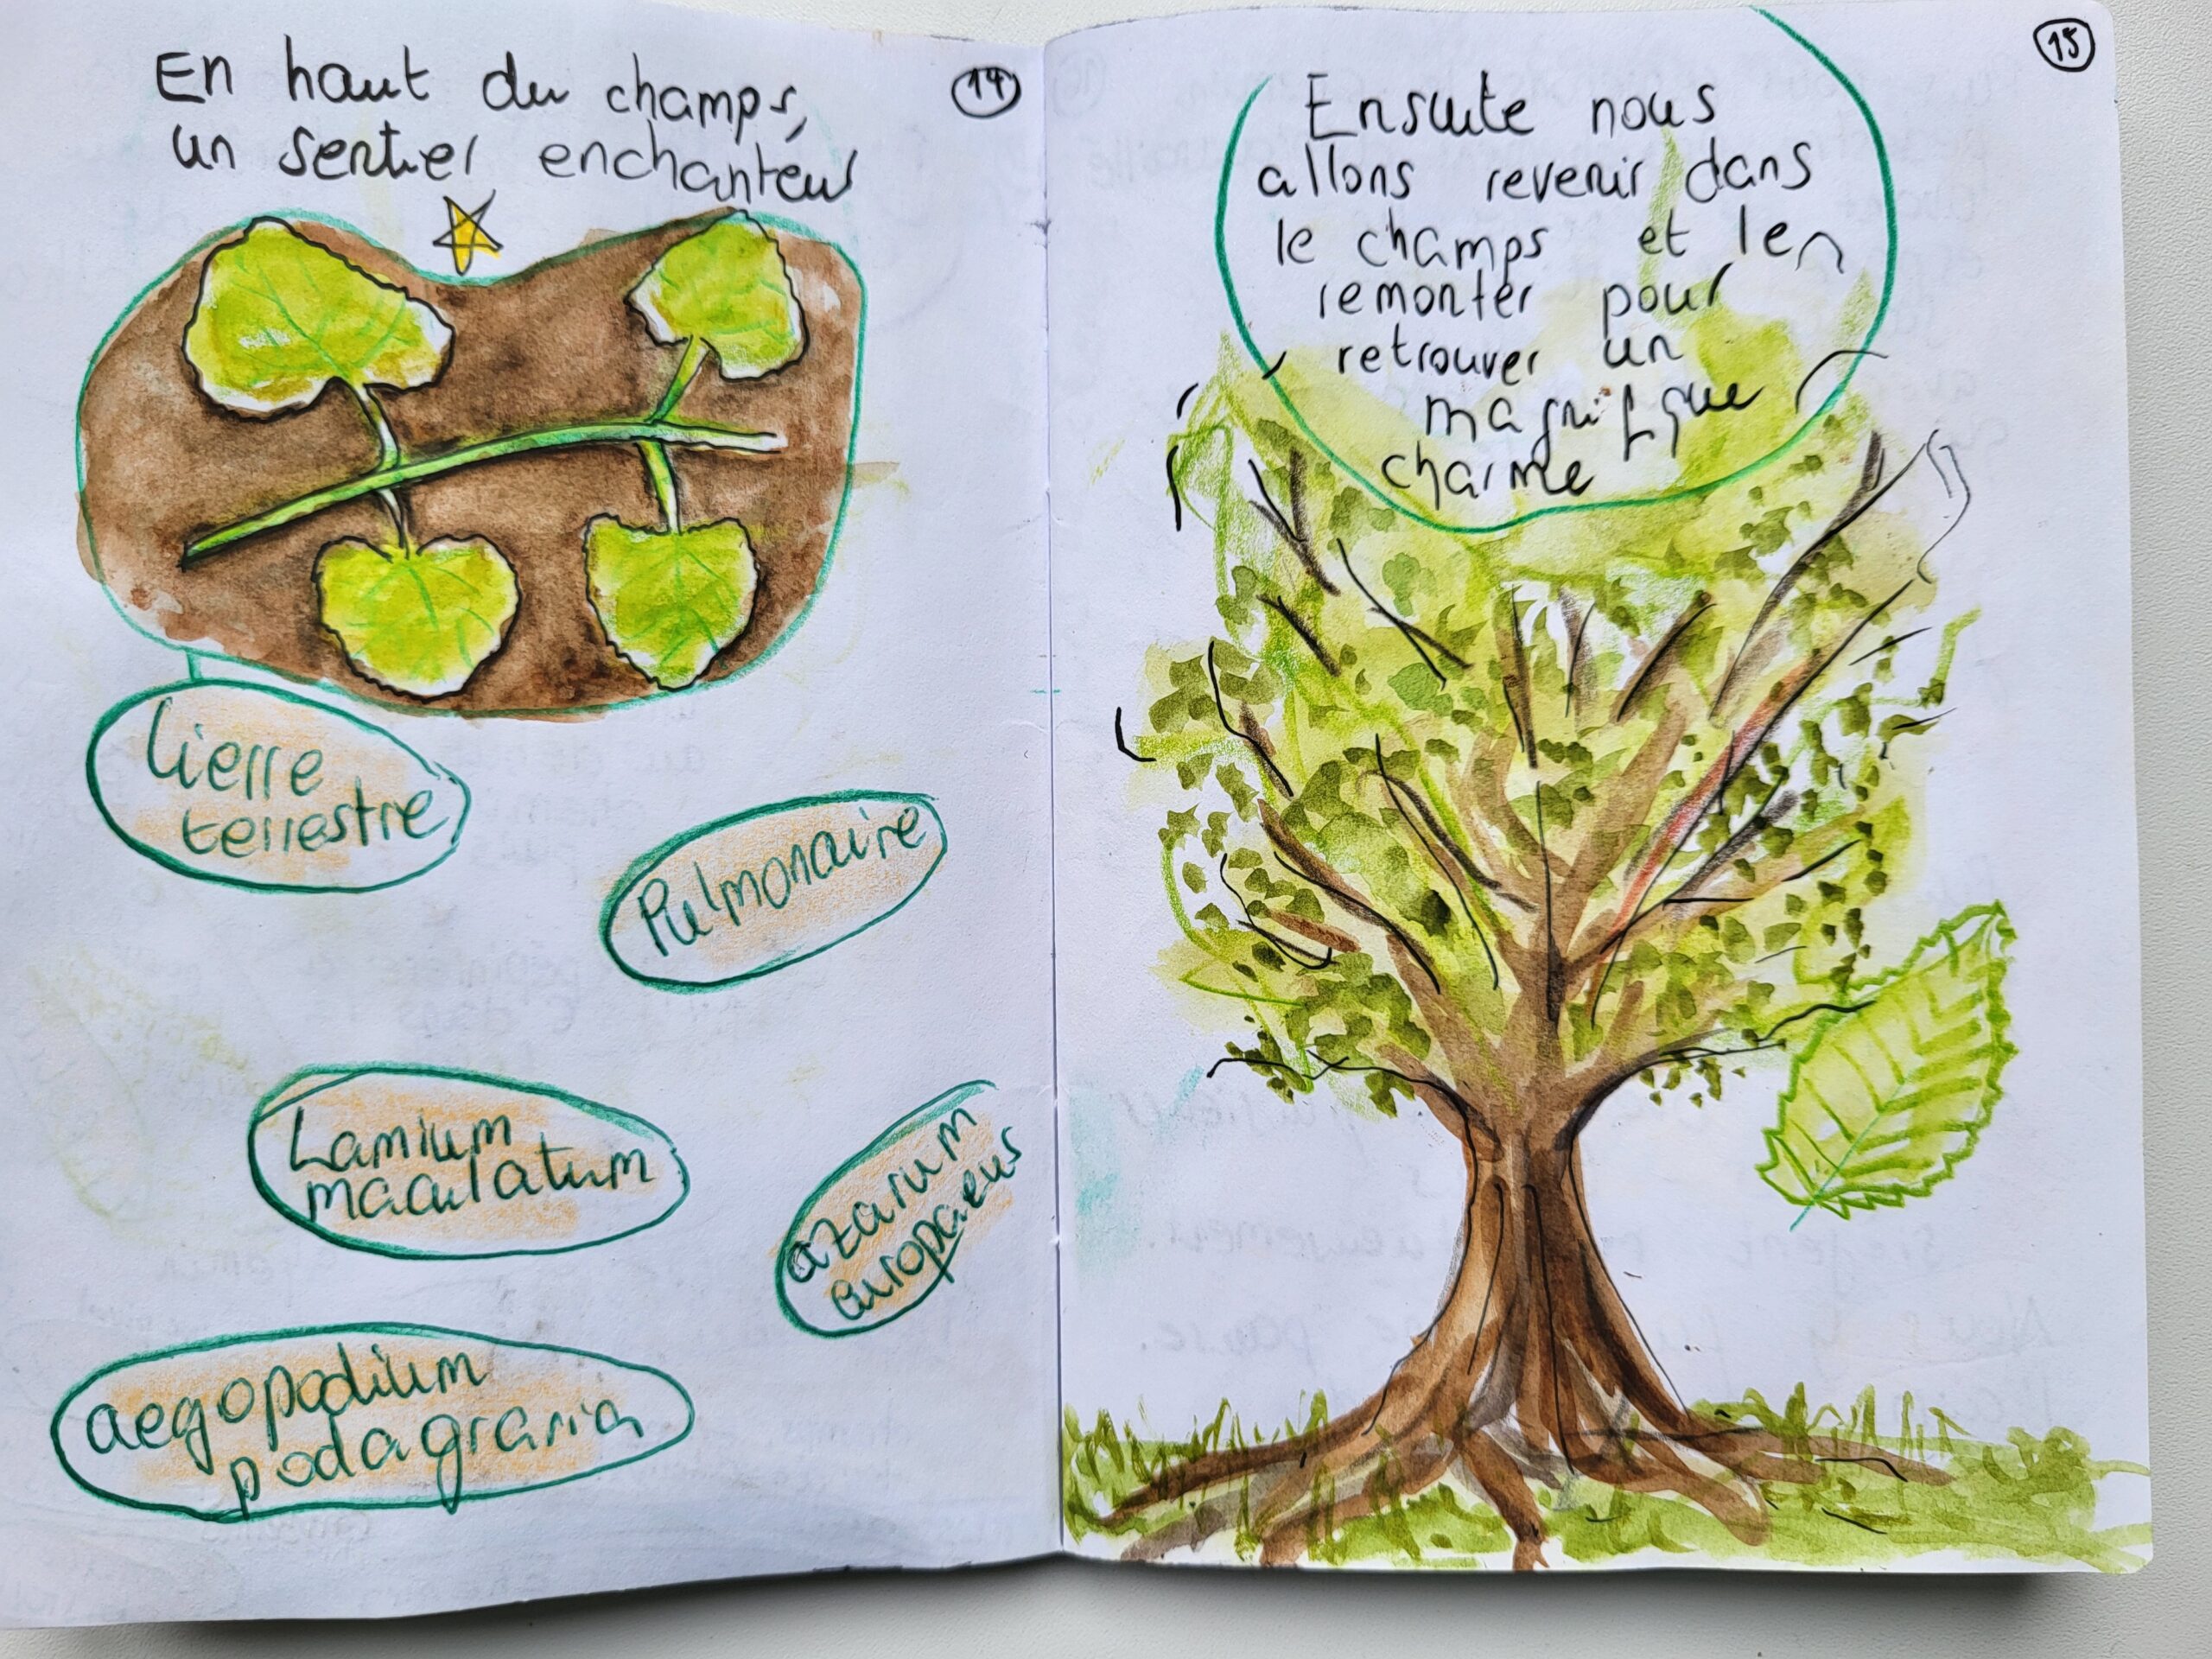 14
En haut du champs,
un sentier enchanteur
lierre
terrestre
Pulmonaire
Lamium
maculatum
azarum
europaeus
aegopodium
podagraria
15
Ensuite nous
allons revenir dans
le champs et le
remonter pour
retrouver un
magnifique
charme